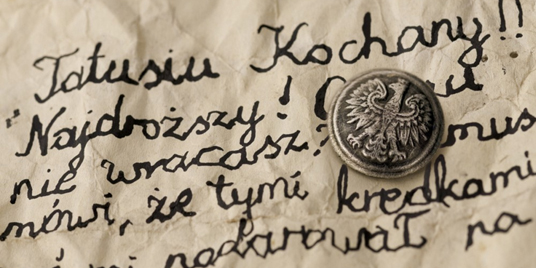 Tatusiu Kochany!!
Najdroższy!
nie wracasz?
mówi, że tymi kredkami
podarował na